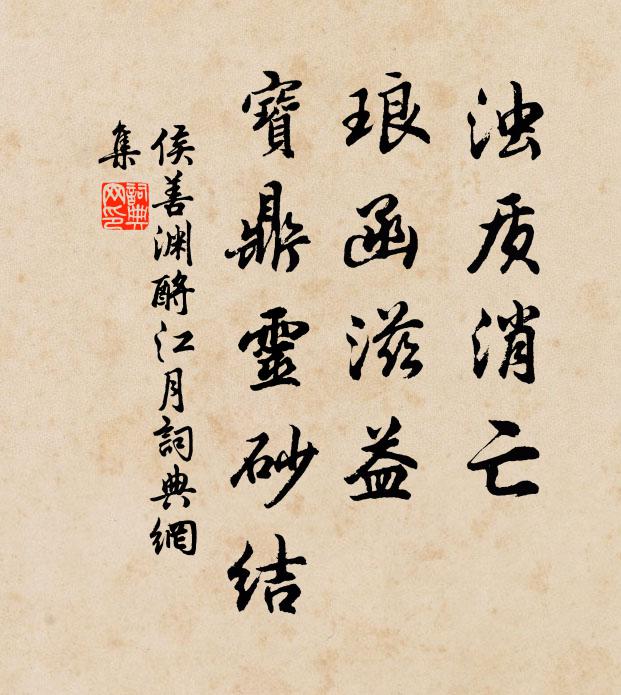 浊质消亡
琅函滋益
寶鼎靈砂结
侯善渊酹江月詞典網
集
詞典网印